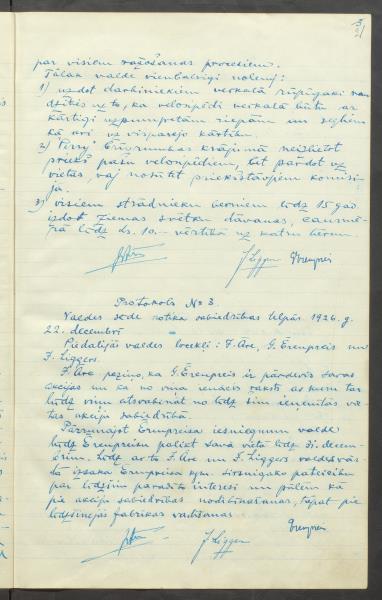 3
par visiem ražošanas procesiem.
Tālāk valde vienbalsīgi nolemj:
1) uzdot darbiniekiem veikalā rūpīgāki rau
dzīties uz to, ka velosipēdi veikalā būtu ar
kārtīgi uzpumpētām riepām un segliem
kā arī uz vispārējo kārtību.
2) "Perry" krājumā neizlietot
priekš pašu velosipēdiem, bet pārdot uz
vietas, vaj nosūtīt priekšstāvjiem komisi-
jā.
3) visiem strādnieku bērniem līdz 15 gad.
izdot ziemas svētku dāvanas, caurmē-
rā līdz Ls. 10.— vērtībā uz katru bērnu.
J. Ligger Ērenpreis
Protokols № 3.
Valdes sēde notika sabiedrības telpās 1926. g.
22. decembrī
Piedalījās valdes locekļi: F. Ore, G. Ērenpreis un
F. Liggers.
F. Ore paziņo, ka G. Ērenpreis ir pārdevis savas
akcijas un ka no viņa ienācis raksts ar kuru tas
lūdz viņu atsvabināt no līdz šim ieņemtās vie
tas akciju sabiedrībā.
Pārrunājot Ērenpreisa iesniegumu valde
lūdz Ērenpreisu palikt savā vietā līdz 31. decem-
brim. Līdz ar to F. Ore un F. Liggers valdes vār-
dā izsaka Ērenpreisa kgm. sirsnīgāko pateicību
par līdzšim parādīto interesi un pūlēm kā
pie akciju sabiedrības nodibināšanas, tāpat pie
līdzšinējās fabrikas vadīšanas
J. Ligger Ērenpreis